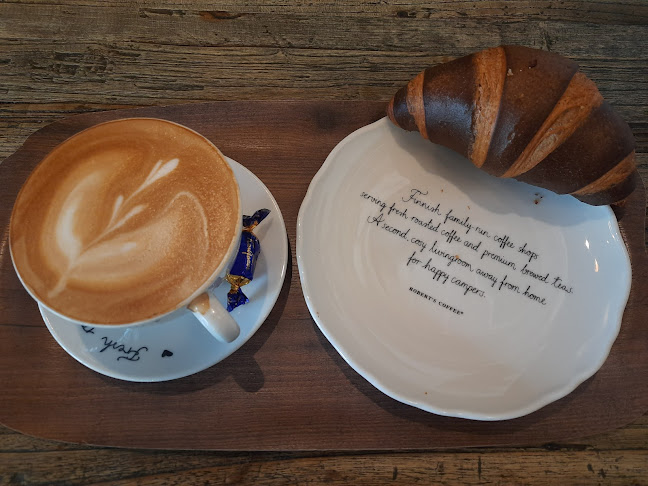 Finnish, family-run, coffee shops
serving fresh roasted coffee and premium brewed teas.
A second, cosy livingroom away from home
for happy campers.
ROBERT'S COFFEE®
Fresh